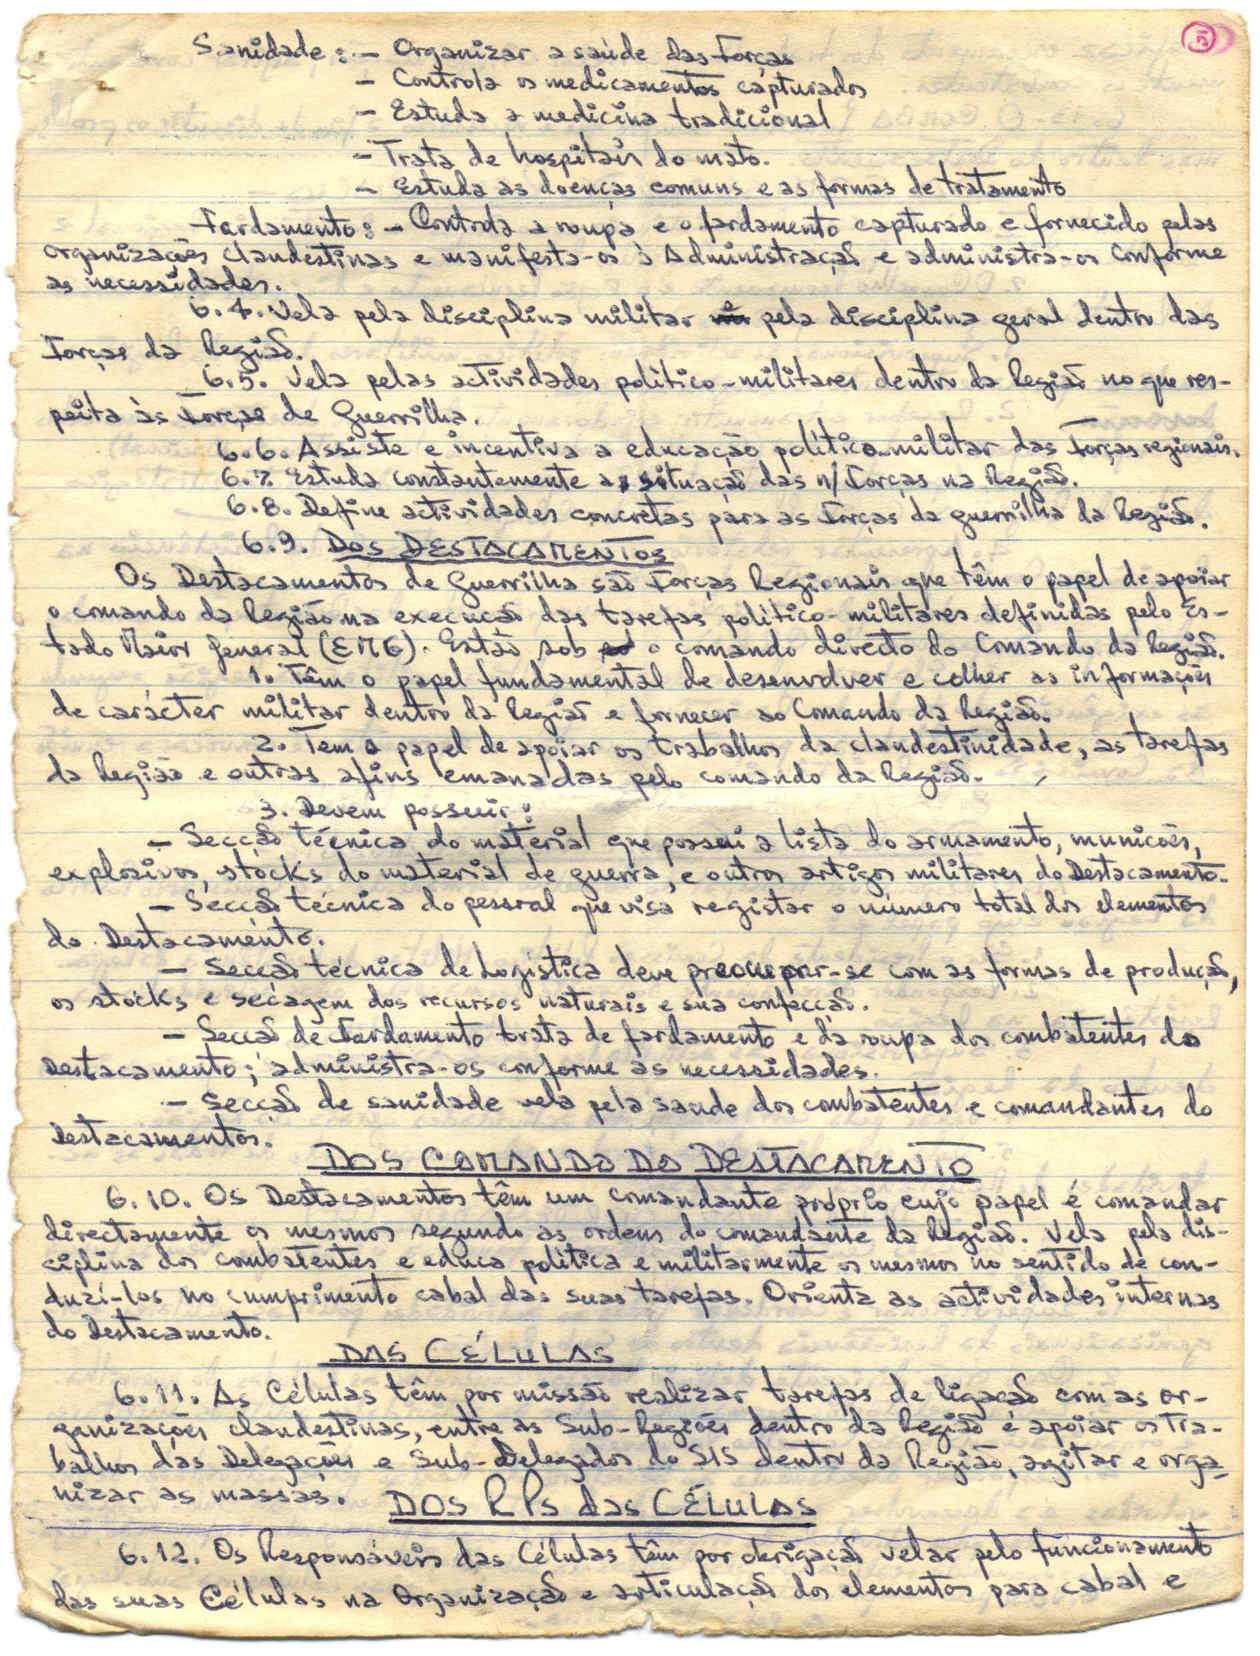 5
Sanidade: - Organizar a saúde das Forças
- Controla os medicamentos capturados
- Estuda a medicina tradicional
- Trata de hospitais do mato.
- Estuda as doenças comuns e as formas de tratamento
Fardamento: - Controla a roupa e o fardamento capturado e fornecido pelas
organizações clandestinas e manifesta-os à Administração e administra-os conforme
as necessidades.
6.4. Vela pela disciplina militar e pela disciplina geral dentro das
Forças da Região.
6.5. Vela pelas actividades político-militares dentro da Região no que res-
peita às Forças de Guerrilha.
6.6. Assiste e incentiva a educação política-militar das Forças regionais.
6.7. Estuda constantemente a situação das n/Forças na Região.
6.8. Define actividades concretas para as Forças da guerrilha da Região.
6.9. DOS DESTACAMENTOS
Os Destacamentos de Guerrilha são Forças Regionais que têm o papel de apoiar
o comando da Região na execução das tarefas político-militares definidas pelo Es-
tado Maior General (EMG). Estão sob o comando directo do Comando da Região.
1. Têm o papel fundamental de desenvolver e colher as informações
de carácter militar dentro da Região e fornecer ao Comando da Região.
2. Tem o papel de apoiar os trabalhos da clandestinidade, as tarefas
da Região e outras afins emanadas pelo comando da Região.
3. Devem possuir:
- Secção técnica do material que possui a lista do armamento, munições,
explosivos, stocks do material de guerra, e outros artigos militares do Destacamento.
- Secção técnica do pessoal que visa registar o número total dos elementos
do Destacamento.
- Secção técnica de Logística deve preocupar-se com as formas de produção,
os stocks e secagem dos recursos naturais e sua confecção.
- Secção de Fardamento trata de fardamento e da roupa dos combatentes do
Destacamento; administra-os conforme as necessidades.
- Secção de sanidade vela pela saude dos combatentes e comandantes do
Destacamentos.
DOS COMANDO DO DESTACAMENTO
6.10. Os Destacamentos têm um comandante próprio cujo papel é comandar
directamente os mesmos segundo as ordens do comandante da Região. Vela pela dis-
ciplina dos combatentes e educa política e militarmente os mesmos no sentido de con-
duzí-los no cumprimento cabal das suas tarefas. Orienta as actividades internas
do Destacamento.
DAS CÉLULAS
6.11. As Células têm por missão realizar tarefas de ligação com as or-
ganizações clandestinas, entre as Sub-Regiões dentro da Região e apoiar os tra-
balhos das Delegações e Sub-Delegados do SIS dentro da Região, agitar e orga-
nizar as massas.
DOS RPs das CÉLULAS
6.12. Os Responsáveis das Células têm por obrigação velar pelo funcionamento
das suas Células na Organização e articulação dos elementos para cabal e